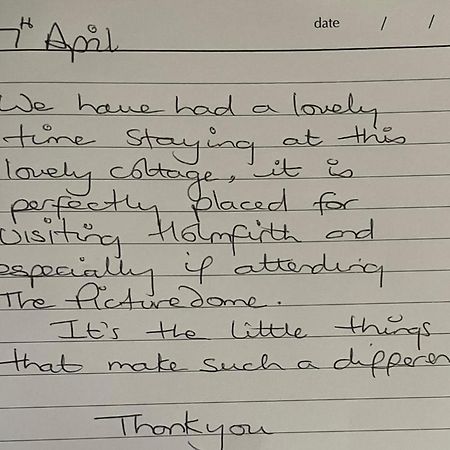 7th April
date / /
We have had a lovely
time staying at this
lovely cottage, it is
perfectly placed for
visiting Holmfirth and
especially if attending
The Picturedome.
It's the little things
that make such a differen
Thankyou